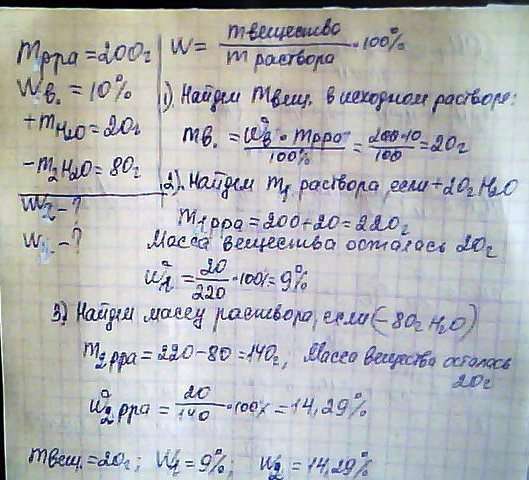 mрра = 200г
Wв. = 10%
+mH₂O = 20г
-m₂H₂O = 80г
W₂ - ?
W₁ - ?
W = mвещество / m раствора · 100%
1). Найдем mвещ. в исходном растворе:
mв. = Wв · mрра / 100% = 200·10 / 100 = 20г
2). Найдем m₁ раствора, если +20г H₂O
m₁рра = 200+20 = 220г
Масса вещества осталась 20г
W₁ = 20/220 · 100% = 9%
3) Найдем массу раствора, если (-80г H₂O)
m₂рра = 220-80 = 140г, Масса вещества осталась
20г
W₂рра = 20/140 · 100% = 14,29%
mвещ. = 20г; W₁ = 9%; W₂ = 14,29%